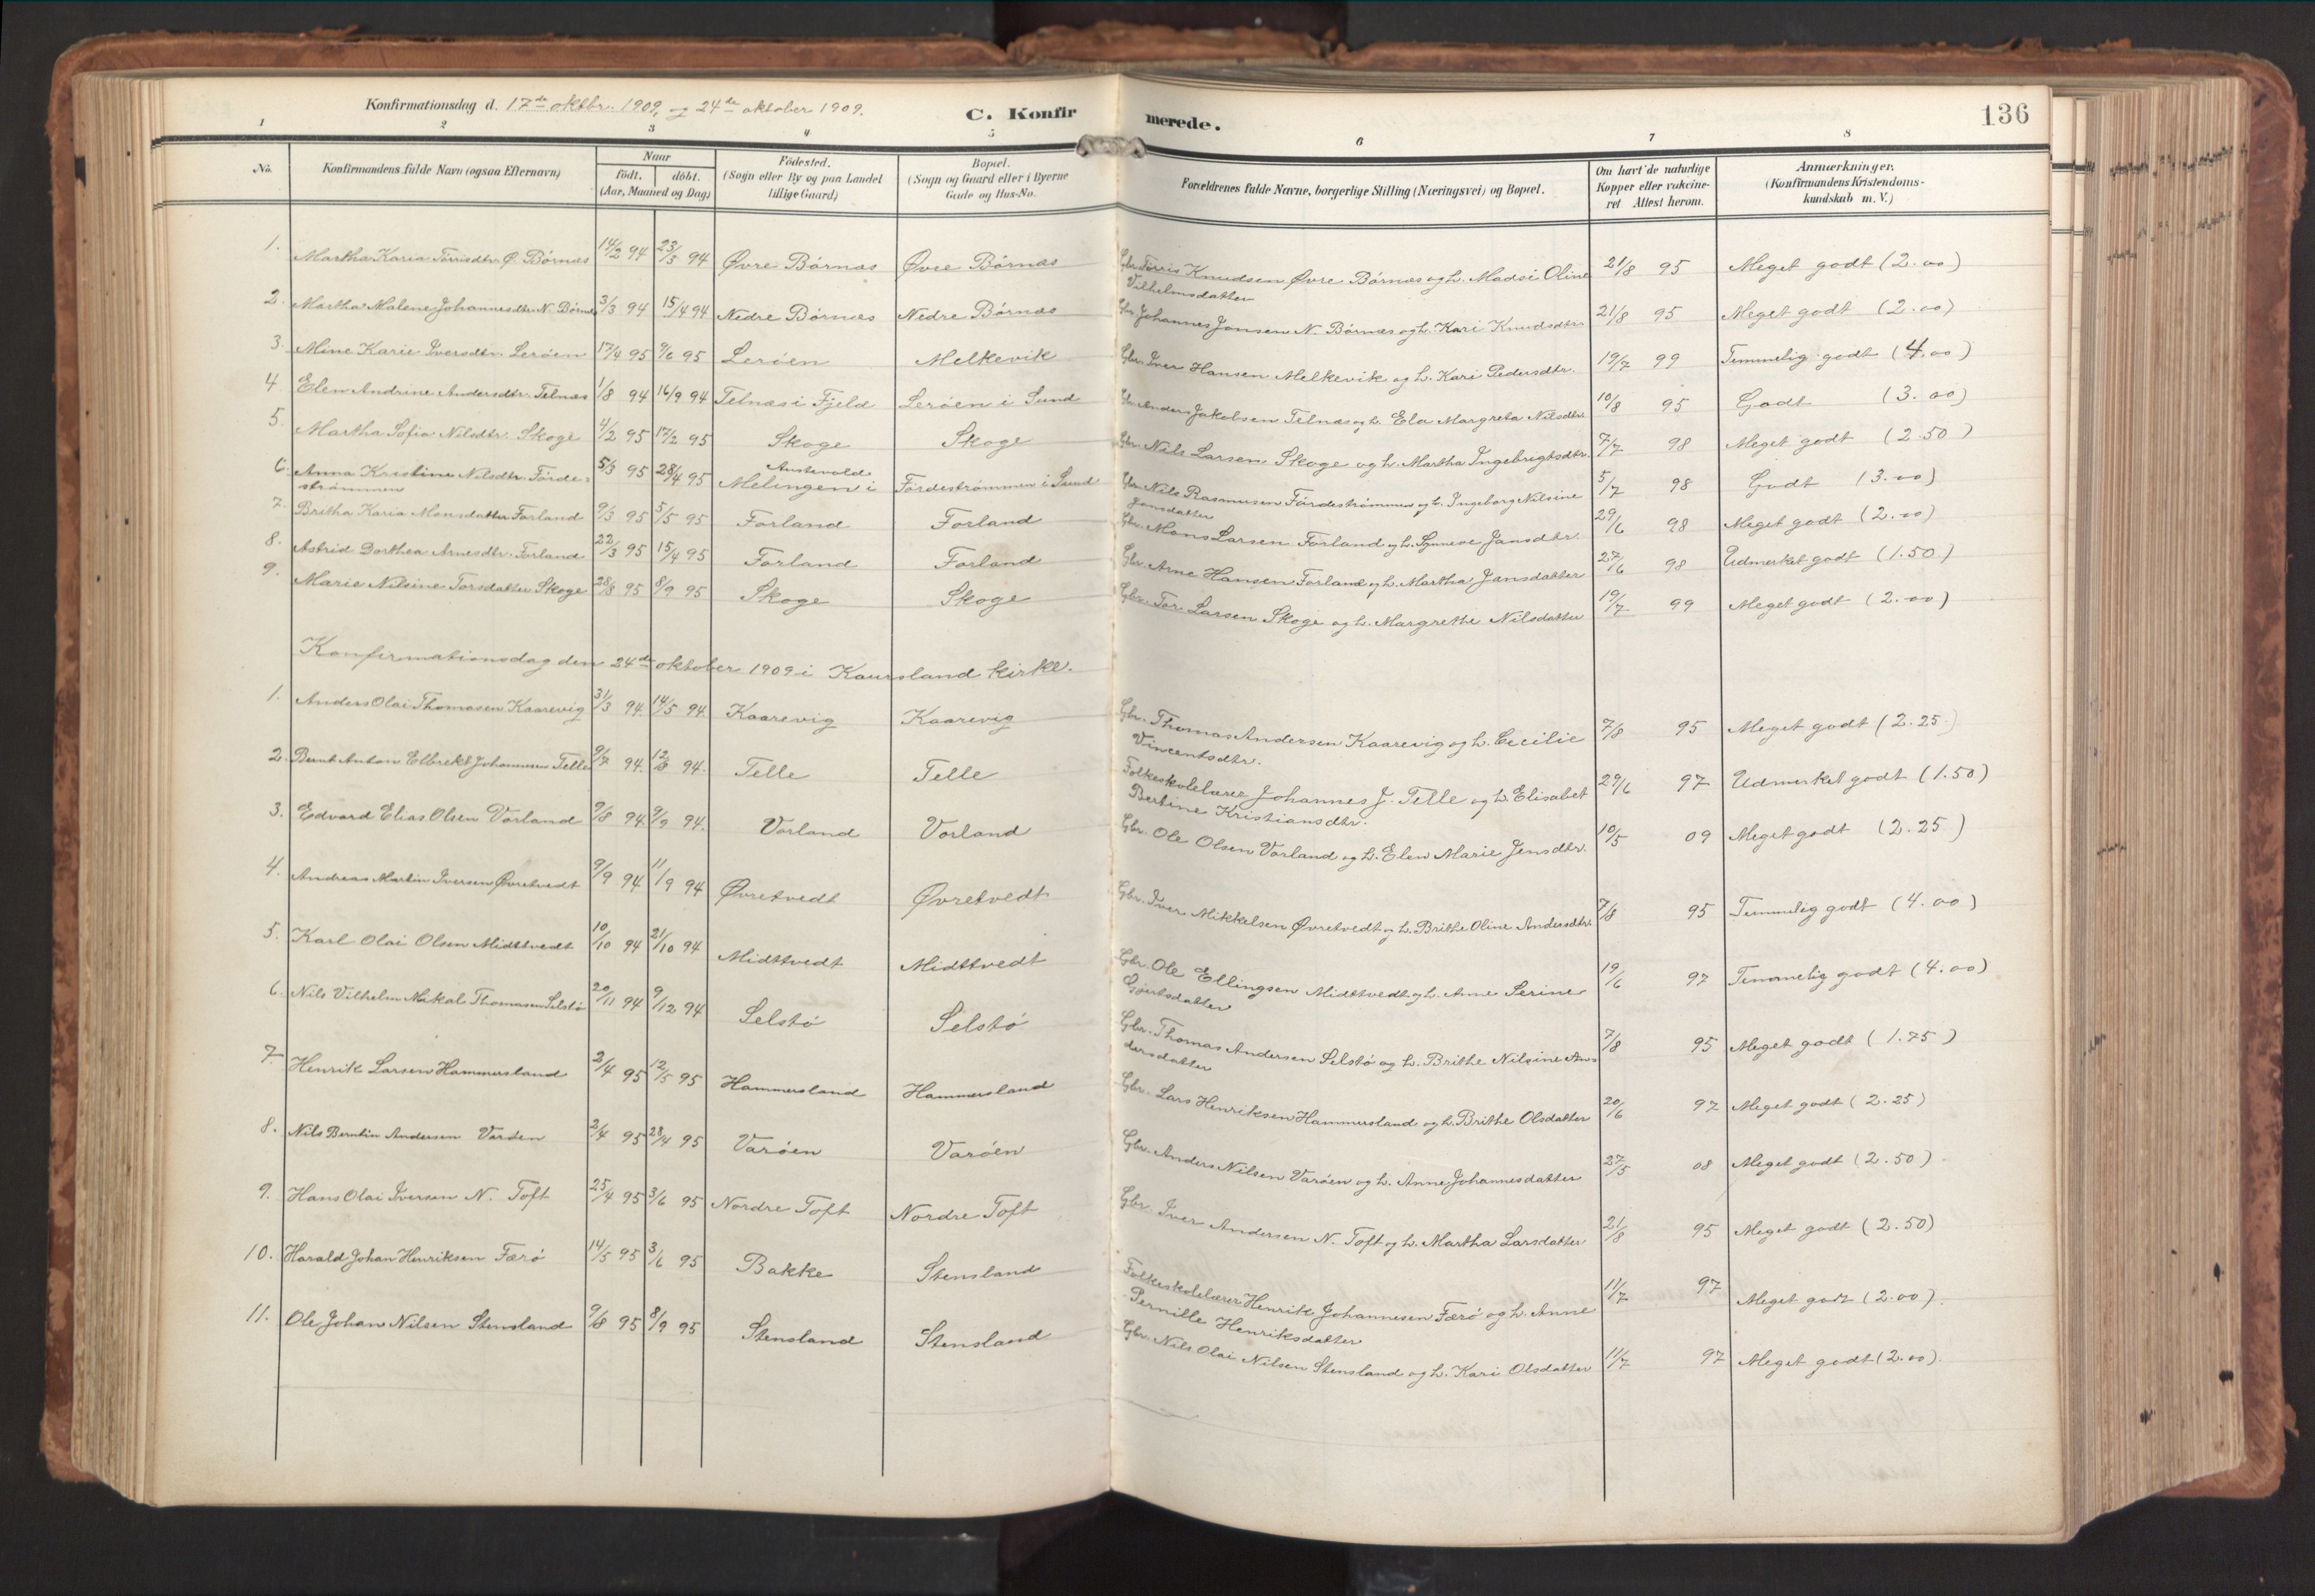 Konfirmationsdag d. 17de oktbr. 1909, og 24de oktober 1909.
C. Konfir merede.
136
1 2 3 4 5 6 7 8
No.
Konfirmandens fulde Navn (ogsaa Efternavn)
Naar
födt. döbt.
(Aar, Maaned og Dag)
Födested.
(Sogn eller By og paa Landet
tillige Gaard)
Bopæl.
(Sogn og Gaard eller i Byerne
Gade og Hus-No.
Forældrenes fulde Navne, borgerlige Stilling (Næringsvei) og Bopæl.
Om havt de naturlige
Kopper eller vakcine-
ret Attest herom.
Anmærkninger.
(Konfirmandens Kristendoms-
kundskab m. V.)
1. Martha Karia Törrisdtr. Ø. Börnæs 14/2 94 23/3 94 Øvre Börnæs Øvre Börnæs Gbr. Törris Knudsen Øvre Börnæs og h. Madsi Oline 21/8 95 Meget godt (2.00)
Vilhelmsdatter
2. Martha Malene Johannesdtr. N. Börnæs 3/3 94 15/4 94 Nedre Börnæs Nedre Börnæs Gbr. Johannes Jonsen N. Börnæs og h. Kari Knudsdtr. 21/8 95 Meget godt (2.00)
3. Mine Karie Iversdtr. Leröen 17/4 95 9/6 95 Leröen Melkevik Gbr. Iver Hansen Melkevik og h. Kari Pedersdtr. 19/7 99 Temmelig godt (4.00)
4. Elen Andrine Andersdtr. Telnæs 1/8 94 16/9 94 Telnæs i Fjeld Leröen i Sund Gbr. Anders Jakobsen Telnæs og h. Ela Margreta Nilsdtr. 10/8 95 Godt (3.00)
5. Martha Sofia Nilsdtr. Skoge 4/2 95 17/2 95 Skoge Skoge Gbr. Nils Larsen Skoge og h. Martha Ingebrigtsdtr. 7/7 98 Meget godt (2.50)
6. Anna Kristine Nilsdtr. Förde- 5/3 95 28/4 95 Austevold Melingen i Fördeströmmen i Sund Gbr. Nils Rasmusen Fördeströmmen og h. Ingeborg Nilsine 5/7 98 Godt (3.00)
strömmen Jonsdatter
7. Britha Karia Monsdatter Forland 9/3 95 5/5 95 Forland Forland Gbr. Mons Larsen Forland og h. Synneve Jansdtr. 29/6 98 Meget godt (2.00)
8. Astrid Dorthea Arnesdtr. Forland 22/3 95 15/4 95 Forland Forland Gbr. Arne Hansen Forland og h. Martha Jansdatter 27/6 98 Udmerket godt (1.50)
9. Marie Nilsine Torsdatter Skoge 28/8 95 8/9 95 Skoge Skoge Gbr. Tor Larsen Skoge og h. Margrethe Nilsdatter 19/7 99 Meget godt (2.00)
Konfirmationsdag den 24de oktober 1909 i Kaursland kirke.
1. Anders Olai Thomasen Kaarevig 31/3 94. 14/5 94. Kaarevig Kaarevig Gbr. Thomas Andersen Kaarevig og h. Cecilie 7/8 95 Meget godt (2.25)
Vincentsdtr.
2. Bernt Anton Elbrekt Johannesen Telle 9/7 94. 94. Telle Telle Folkeskolelærer Johannes J. Telle og h. Elisabet 29/6 97 Udmerket godt (1.50)
Bertine Kristiansdtr.
3. Edvard Elias Olsen Vorland 9/8 94. 9/9 94. Vorland Vorland Gbr. Ole Olsen Vorland og h. Elen Marie Jensdtr. 10/5 09 Meget godt (2.25)
4. Andreas Martin Iversen Øvretvedt 9/9 94 11/9 94 Øvretvedt Øvretvedt Gbr. Iver Mikkelsen Øvretvedt og h. Brithe Oline Andersdtr. 7/8 95 Temmelig godt (4.00)
5. Karl Olai Olsen Midttvedt 10/10 94 21/10 94 Midttvedt Midttvedt Gbr. Ole Ellingsen Midttvedt og h. Anne Serine 19/6 97 Temmelig godt (4.00)
Gjertsdatter
6. Nils Vilhelm Mikal Thomasen Selstø 20/11 94 9/12 94 Selstø Selstø Gbr. Thomas Andersen Selstø og h. Brithe Nilsine An- 7/8 95 Meget godt (1.75)
dersdatter
7. Henrik Larsen Hammersland 2/4 95 12/5 95 Hammersland Hammersland Gbr. Lars Henriksen Hammersland og h. Brithe Olsdatter 20/6 97 Meget godt (2.25)
8. Nils Berntin Andersen Varöen 2/4 95 28/4 95 Varöen Varöen Gbr. Anders Nilsen Varöen og h. Anne Johannesdatter 27/5 08 Meget godt (2.50)
9. Hans Olai Iversen N. Toft 25/4 95 3/6 95 Nordre Toft Nordre Toft Gbr. Iver Andersen N. Toft og h. Martha Larsdatter 21/8 95 Meget godt (2.50)
10. Harald Johan Henriksen Færö 14/5 95 3/6 95 Bakke Stensland Folkeskolelærer Henrik Johannesen Færö og h. Anne 11/7 97 Meget godt (2.00).
Pernille Henriksdatter
11. Ole Johan Nilsen Stensland 9/8 95 8/9 95 Stensland Stensland Gbr. Nils Olai Nilsen Stensland og h. Kari Olsdatter 11/7 97 Meget godt (2.00).